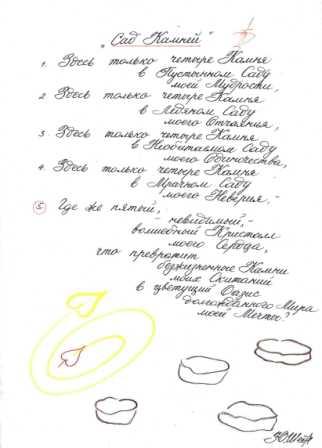 "Сад Камней"
1. Здесь только четыре Камня
в Пустынном Саду
моей Мудрости,
2. Здесь только четыре Камня
в Ледяном Саду
моего Отчаяния,
3. Здесь только четыре Камня
в Необитаемом Саду
моего Одиночества,
4. Здесь только четыре Камня
в Мрачном Саду
моего Неверия, -
5. Где же пятый,
- невидимый, -
волшебный Кристалл
моего Сердца,
что превратит
безжизненные Камни
моих Скитаний
в цветущий Оазис
долгожданного Мира
моей Мечты?